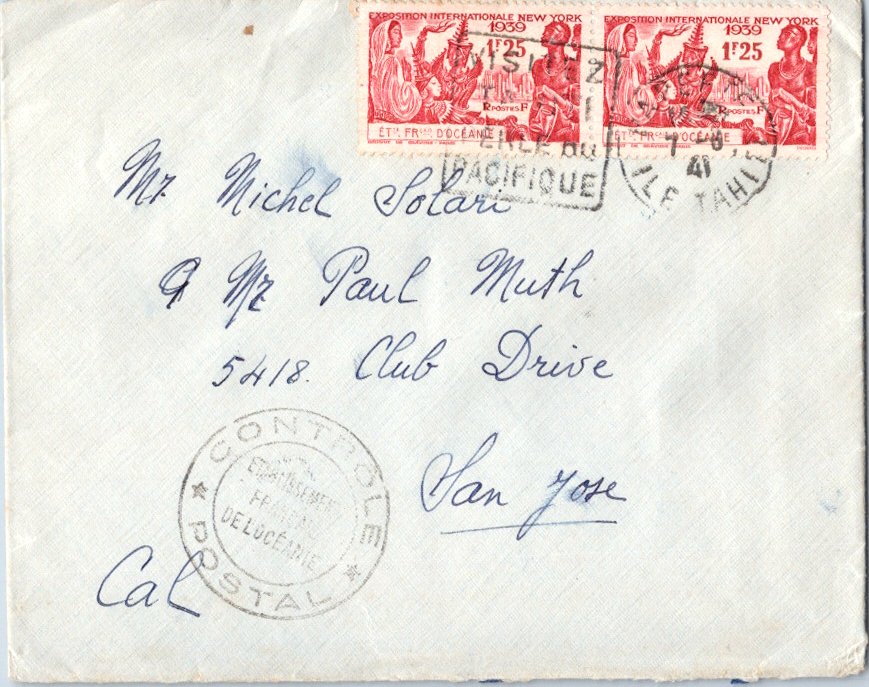 EXPOSITION INTERNATIONALE NEW YORK
1939
1F25
RF
POSTES
ÉTTS FRÇAIS D'OCÉANIE
EXPOSITION INTERNATIONALE NEW YORK
1939
1F25
RF
POSTES
ÉTTS FRÇAIS D'OCÉANIE
VISITEZ
PERLE du
PACIFIQUE
41
ILE TAHITI
Mr Michel Solari
Mr Paul Muth
5418. Club Drive
San Jose
Cal
CONTRÔLE
ETABLISSEMENTS
FRANÇAIS
DE L'OCÉANIE
POSTAL